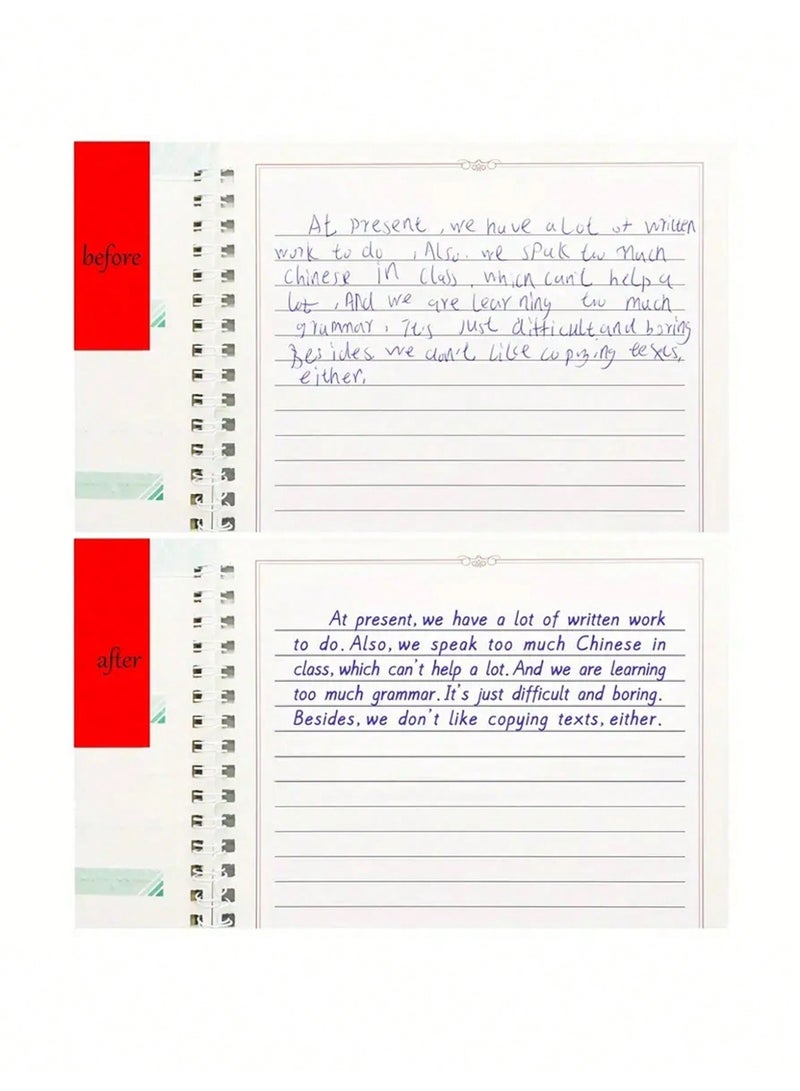 before
At present, we have a lot of written
work to do , Also. we speak too much
chinese in class, which can't help a
lot , And we are learning too much
grammar. It's just difficult and boring
Besides we don't like copying texts.
either.
after
At present, we have a lot of written work
to do. Also, we speak too much Chinese in
class, which can't help a lot. And we are learning
too much grammar. It's just difficult and boring.
Besides, we don't like copying texts, either.